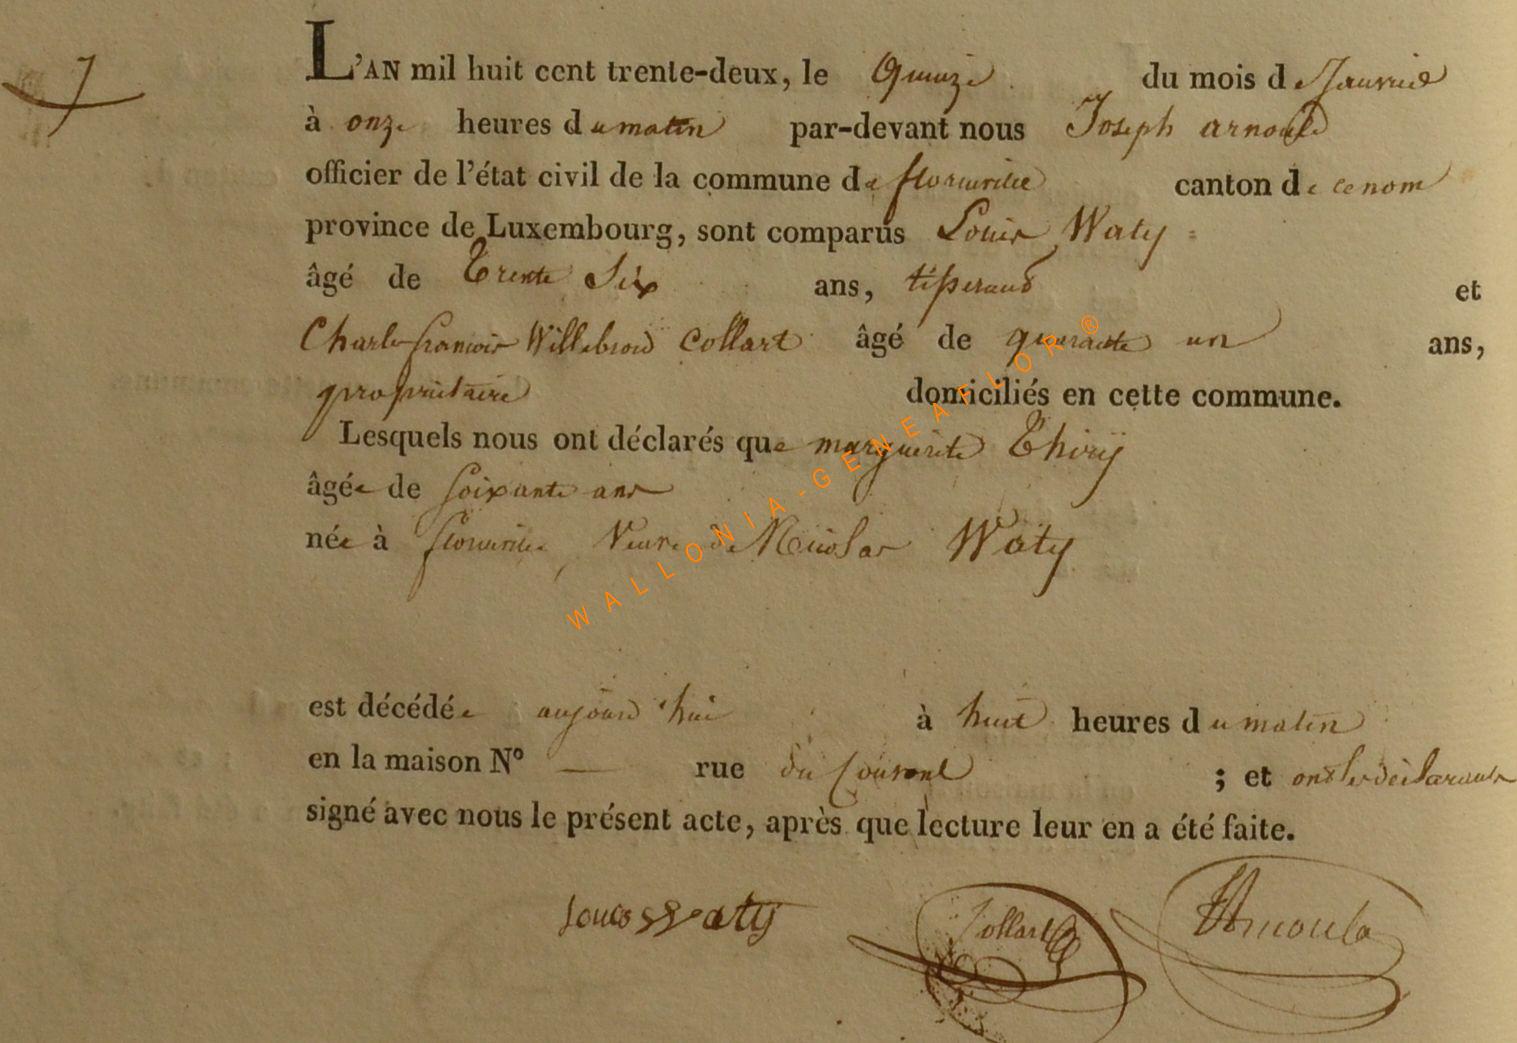 7
L'AN mil huit cent trente-deux, le Quinze du mois de Janvier
à onze heures du matin par-devant nous Joseph arnould
officier de l'état civil de la commune de florenville canton de ce nom
province de Luxembourg, sont comparus Louis Waty
âgé de Trente Six ans, tisserand et
Charles françois Willebrord Collart âgé de quarante un ans,
propriétaire domiciliés en cette commune.
Lesquels nous ont déclarés que marguerite Thiry
âgée de soixante ans
née à florenville, Veuve de Nicolas Waty
est décédée aujourd'hui à huit heures du matin
en la maison N° — rue du ; et ont les déclarants
signé avec nous le présent acte, après que lecture leur en a été faite.
louis Waty Collart JArnould
WALLONIA-GENEAFLOR®